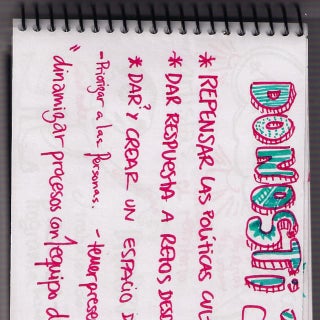 DONOSTI
* REPENSAR LAS POLÍTICAS CUL
* DAR RESPUESTA A RETOS DESD
* DAR? Y CREAR UN ESPACIO D
- Priorizar a las personas. - tener prese
" dinamizar procesos con/equipo d